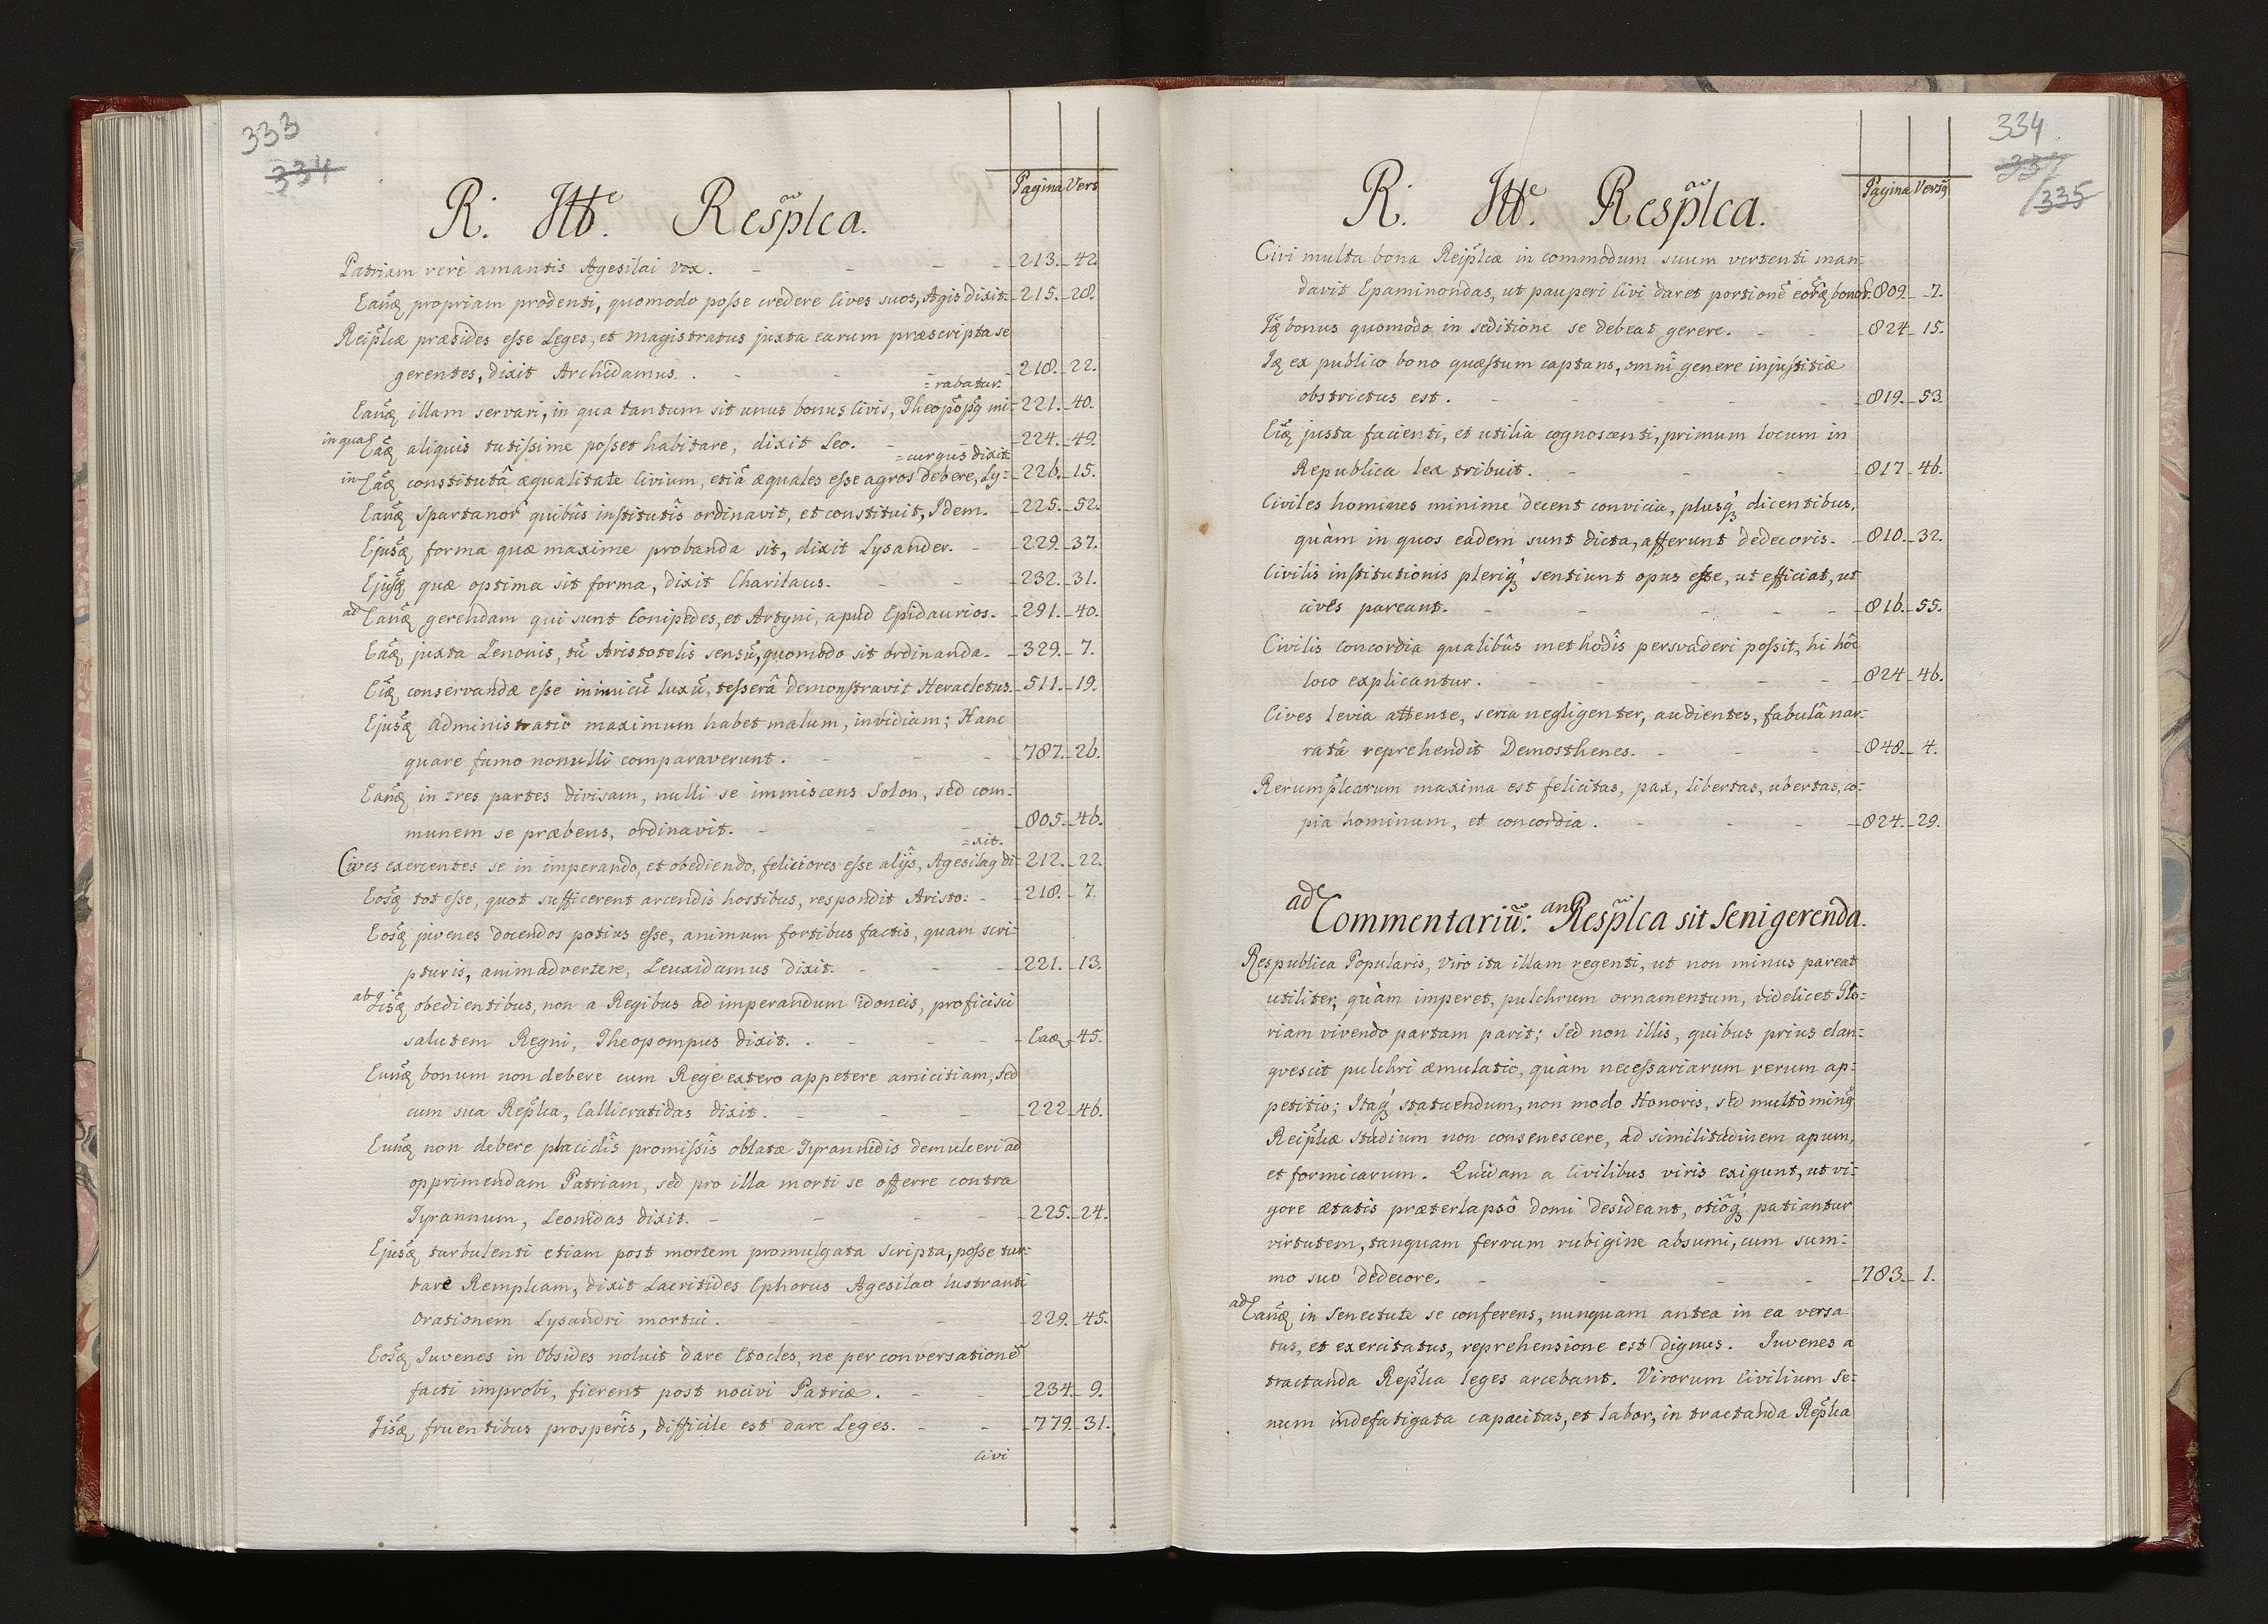 333
334
Pagina Vers
R. Itt͠e. Resp̃lca.
Patriam verè amantis Agesilai vox. - - - - 213. 42.
Eanq̃ propriam prodenti, quomodo posse credere Cives suos, Agis dixit. 215. 28.
Reip̃lcæ præsides esse Leges, et Magistratus juxta earum præscripta se
gerentes, dixit Archidamus. . - - - 218. 22.
= rabatur.
Eanq̃ illam servari, in qua tantum sit unus bonus Civis, Theopõpq mi= 221. 40.
in qua Eãq aliquis tutissime posset habitare, dixit Leo. - 224. 49.
= curgus dixit.
in Eãq constitutâ æqualitate Civium, etiã æquales esse agros debere, Ly= 226. 15.
Eanq̃ Spartanor̃ quibûs institutîs ordinavit, et constituit, Idem. 225. 52.
Ejusq̃ forma quæ maxime probanda sit, dixit Lysander. - 229. 37.
Ejusq̃ quæ optima sit forma, dixit Charilaus. - - 232. 31.
ad Eanq̃ gerendam qui sunt Conipedes, et Artyni, apud Epidaurios. 291. 40.
Eãq juxta Zenonis, tũ Aristotelis sensũ, quomodo sit ordinanda. 329. 7.
Eiq̃ conservandæ esse inimicũ luxũ, tesserâ demonstravit Heracletus. 511. 19.
Ejusq̃ administratio maximum habet malum, invidiam; Hanc
quare fumo nonulli comparaverunt. - - - 787. 26.
Eanq̃ in tres partes divisam, nulli se immiscens Solon, sed com=
munem se præbens, ordinavit. - - - 805. 46.
= xit.
Cives exercentes se in imperando, et obediendo, feliciores esse alijs, Agesilaq di= 212. 22.
Eosq̃ tot esse, quot sufficerent arcendis hostibus, respondit Aristo: - 218. 7.
Eosq̃ juvenes docendos potius esse, animum fortibus factis, quam scri=
pturis, animadvertere, Zeuxidamus dixit. - - - 221. 13.
ab Iisq̃ obedientibus, non a Regibus ad imperandum idoneis, proficisci
salutem Regni, Theopompus dixit. . - - - Eaq̃ 45.
Eunq̃ bonum non debere cum Rege extero appetere amicitiam, sed
cum sua Rep̃lca, Callicratidas dixit. - - - 222. 46.
Eunq̃ non debere placidîs promissîs oblatæ Tyrannidis demulceri ad
opprimendam Patriam, sed pro illa morti se offerre contra
Tyrannum, Leonidas dixit. - - - - 225. 24.
Ejusq̃ turbulenti etiam post mortem promulgata scripta, posse tur=
bare Remplcam, dixit Lacritides Ephorus Agesilao lustranti
Orationem Lysandri mortui. - - - 229. 45.
Eosq̃ Juvenes in Obsides noluit dare Etocles, ne per conversationẽ
facti improbi, fierent post nocivi Patriæ. - - 234. 9.
Iisq̃ fruentibus prosperîs, difficile est dare Leges. - - 779. 31.
Civi
334
335
Pagina Versq
R. Itt͠e. Resp̃lca.
Civi multa bona Reip̃lcæ in commodum suum vertenti man=
davit Epaminondas, ut pauperi Civi daret portionẽ eorq̃ bonor̃. 809. 7.
Iq̃ bonus quomodo in seditione se debeat gerere. - - 824. 15.
Iq̃ ex publico bono quæstum captans, omnî genere injustitiæ
obstrictus est. - - - - 819. 53.
Eiq̃ justa facienti, et utilia cognoscenti, primum locum in
Republica lex tribuit. - - - 817. 46.
Civiles homines minime decent convicia, plusq́ dicentibus,
quàm in quos eadem sunt dicta, afferunt dedecoris. - 810. 32.
Civilis institutionis pleriq́ sentiunt opus esse, ut efficiat, ut
cives pareant. - - - - 816. 55.
Civilis concordia qualibûs methodîs persvaderi possit, hi hôc
loco explicantur. - - - - 824. 46.
Cives levia attente, seria negligenter, audientes, fabulâ nar=
ratâ reprehendit Demosthenes. - - - 848. 4.
Rerump̃lcarum maxima est felicitas, pax, libertas, ubertas, co=
pia hominum, et concordia. - - - 824. 29.
ad Commentariũ: an Resp̃lca sit Seni gerenda.
Respublica Popularis, viro ita illam regenti, ut non minus pareat
utiliter, quàm imperet, pulchrum ornamentum, videlicet Glo=
riam vivendo partam parit; Sed non illis, quibus prius elan=
gvescit pulchri æmulatio, quàm necessariarum rerum ap=
petitio; Itaq́ statuendum, non modo Honoris, sed multò minq̃
Reip̃lcæ studium non consenescere, ad similitudinem apum,
et formicarum. Quidam a Civilibus viris exigunt, ut vi=
gore ætatis præterlapsô domi desideant, otiôq́ patiantur
virtutem, tanquam ferrum rubigine absumi, cum sum=
mo suo dedecore. - - - - 783. 1.
ad Eanq̃ in Senectute se conferens, nunquam antea in ea versa
tus, et exercitatus, reprehensione est dignus. Juvenes a
tractanda Rep̃lca leges arcebant. Virorum Civilium Se=
num indefatigata capacitas, et labor, in tractanda Rep̃lca